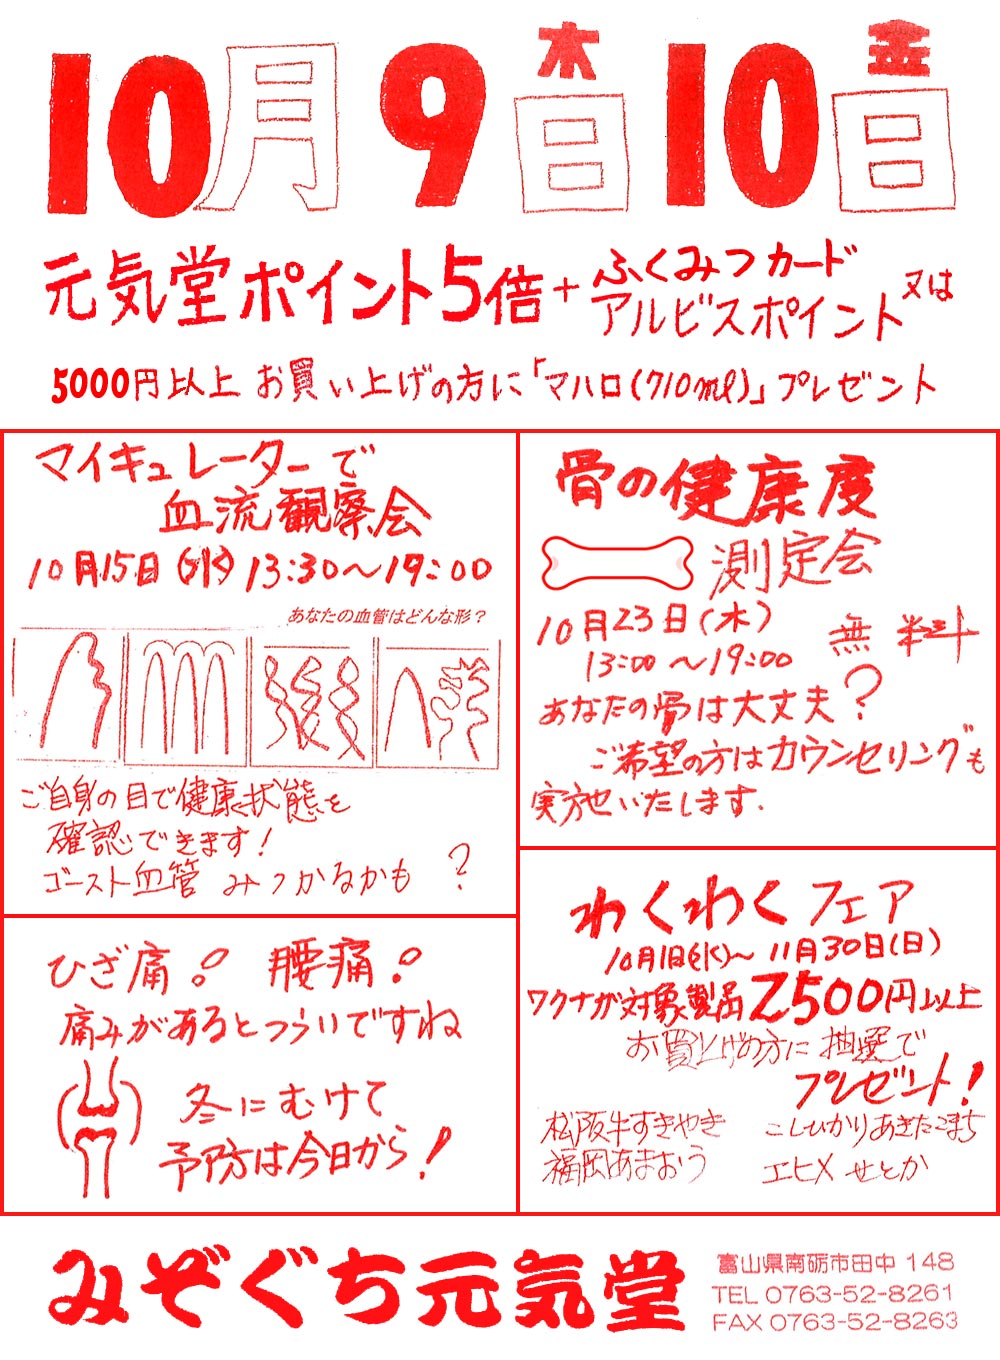 10月9日木10日金
元気堂ポイント5倍+ふくみつカード
アルビスポイント又は
5000円以上お買い上げの方に「マハロ(710ml)」プレゼント
マイキュレーターで
血流観察会
10月15日(水)13:30~19:00
あなたの血管はどんな形?
ご自身の目で健康状態を
確認できます!
ゴースト血管 みつかるかも?
骨の健康度
測定会
10月23日(木)
13:00~19:00
無料
あなたの骨は大丈夫?
ご希望の方はカウンセリングも
実施いたします.
ひざ痛。腰痛。
痛みがあるとつらいですね
冬にむけて
予防は今日から!
わくわくフェア
10月1日(水)~11月30日(日)
ワクナガ対象製品2500円以上
お買上げの方に抽選で
プレゼント!
松阪牛すきやき
福岡あまおう
こしひかりあきたこまち
エヒメせとか
みぞぐち元気堂
富山県南砺市田中 148
TEL 0763-52-8261
FAX 0763-52-8263